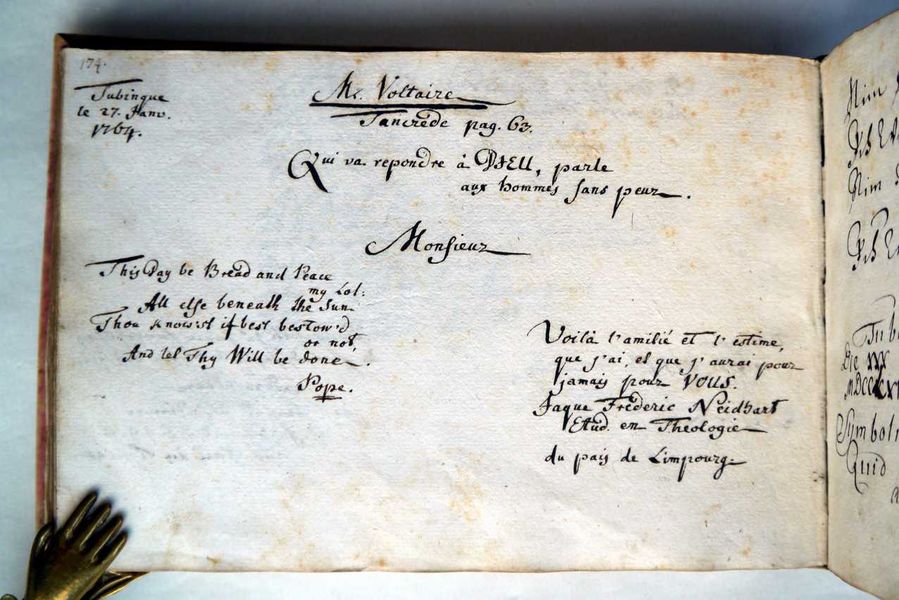 174.
Tubinque
le 27. Janv.
1764.
Mr. Voltaire
Tancrede pag. 63.
Qui va repondre à DIEU, parle
aux hommes sans peur.
Monsieur
This Day be Bread and Peace
my Lot:
All else beneath the Sun
Thou know'st if best bestow'd
or not,
And let Thy Will be done.
Pope.
Voilà l'amilié et l'estime,
que j'ai, et que j'aurai pour
jamais pour VOUS.
Jaque Frederic Neidhart
Etud. en Theologie
du pais de Limpourg.
Nim
Nim
Die
Symbol
Quid